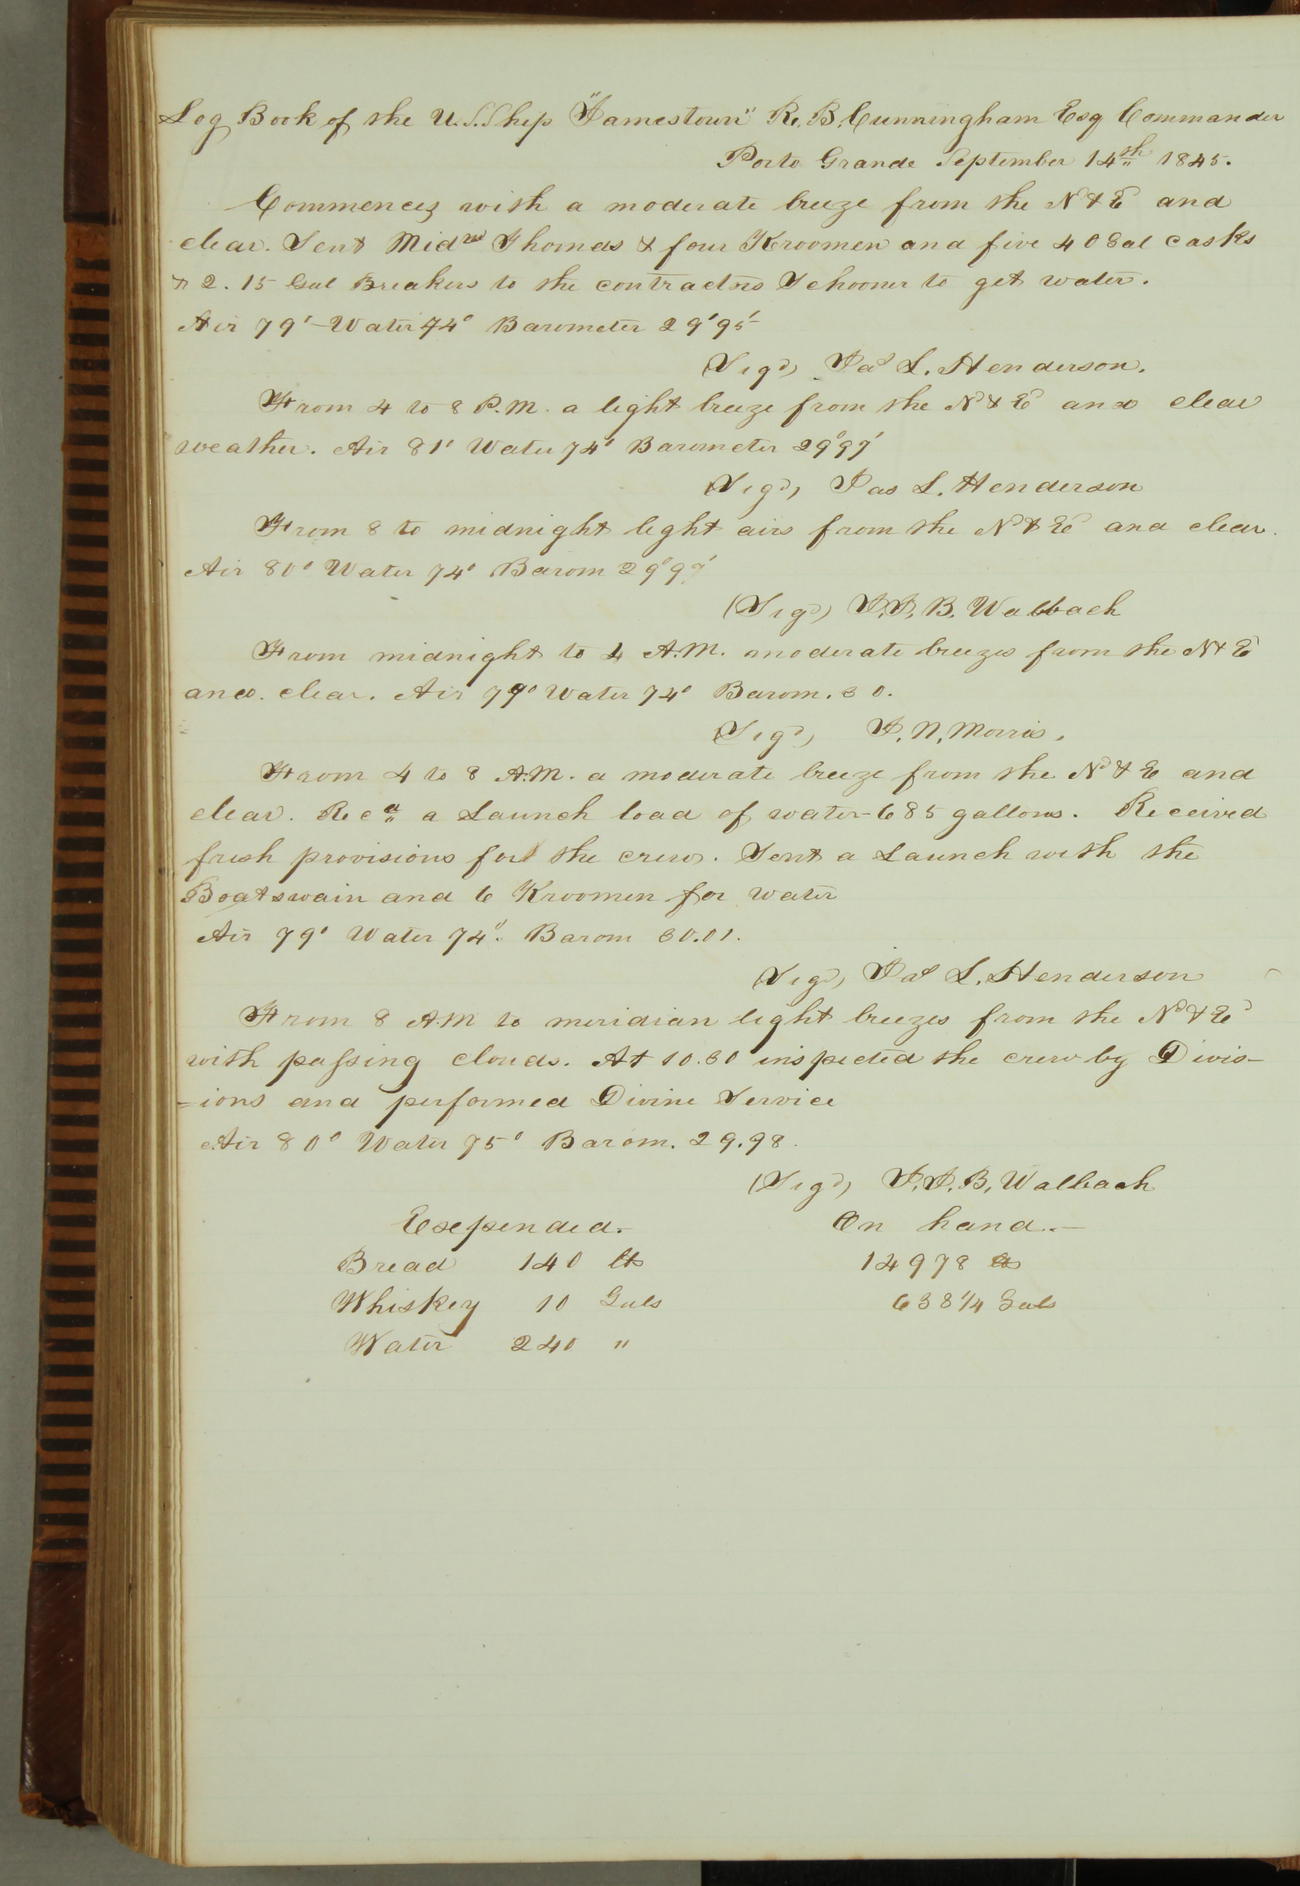 Log Book of the U.S. Ship "Jamestown" R. B. Cunningham Esq Commander
Porto Grande September 14th 1845.
Commences with a moderate breeze from the Nd & Ed and
clear. Sent Midn Thomas & four Kroomen and five 40 Gal casks
& 2. 15 Gal Breakers to the contractors Schooner to get water.
Air 79° Water 74° Barometer 29°95'
(Sigd) Jas L. Henderson.
From 4 to 8 P.M. a light breeze from the Nd & Ed and clear
weather. Air 81° Water 74° Barometer 29°99'
(Sigd) Jas L. Henderson
From 8 to midnight light airs from the Nd & Ed and clear.
Air 80° Water 74° Barom 29°99'
(Sigd) J.J.B. Walbach
From midnight to 4 A.M. moderate breezes from the Nd & Ed
and clear. Air 79° Water 74° Barom. 30.
(Sigd) J. N. Morris.
From 4 to 8 A.M. a moderate breeze from the Nd & Ed and
clear. Recd a Launch load of water - 685 gallons. Received
fresh provisions for the crew. Sent a Launch with the
Boatswain and 6 Kroomen for water
Air 79° Water 74°. Barom 30.01.
(Sigd) Jas L. Henderson
From 8 A.M to meridian light breezes from the Nd & Ed
with passing clouds. At 10.30 inspected the crew by Divis-
=ions and performed Divine Service
Air 80° Water 75° Barom. 29.98.
(Sigd) J.J.B. Walbach
Expended. On hand.
Bread 140 lbs 14978 lbs
Whiskey 10 Gals 638 1/4 Gals
Water 240 "